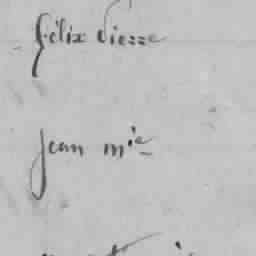 félix Pierre
jean mie